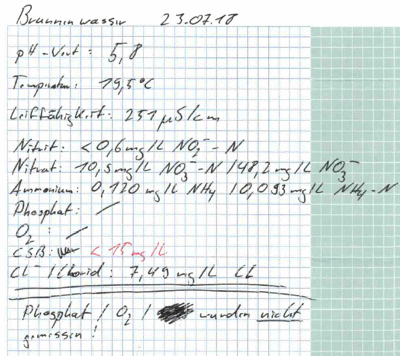 Brunnenwasser 23.07.18
pH-Wert: 5,8
Temperatur: 19,5°C
Leitfähigkeit: 251 µS/cm
Nitrit: <0,6 mg/L NO2⁻-N
Nitrat: 10,5 mg/L NO3⁻-N / 48,2 mg/L NO3⁻
Ammonium: 0,120 mg/L NH4 / 0,093 mg/L NH4-N
Phosphat: —
O2: —
CSB: < 15 mg/L
CL⁻/Chlorid: 7,49 mg/L CL
Phosphat / O2 / wurden nicht
gemessen!